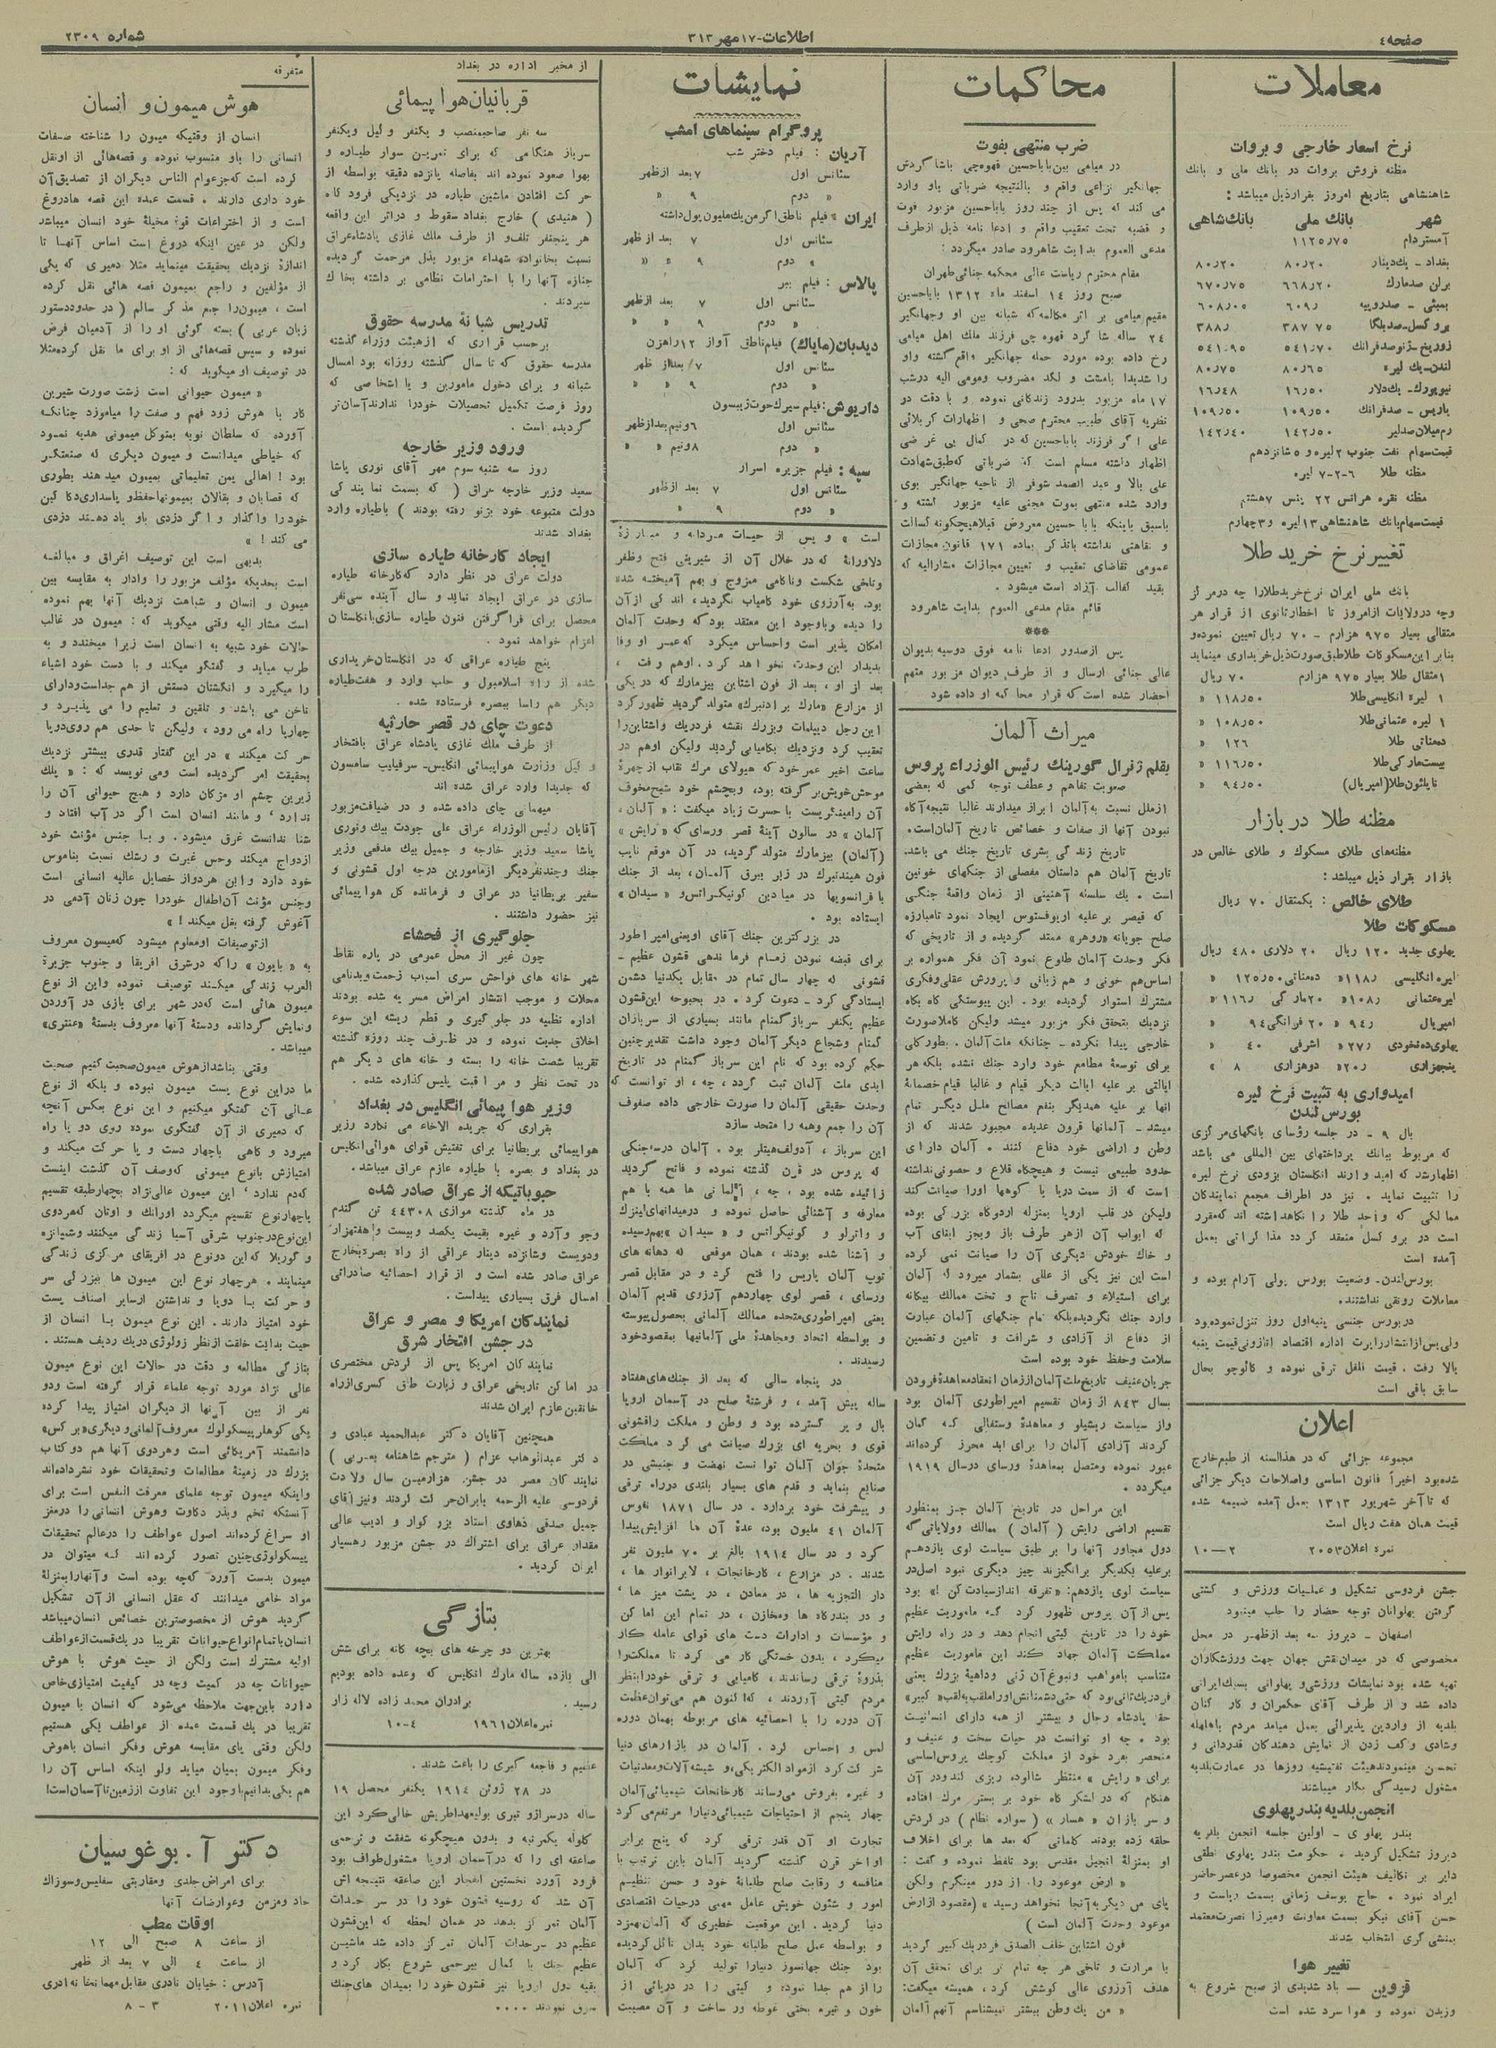 صفحه ٤
اطلاعات - ١٧ مهر ٣١٣
شماره ٢٣٠٩
معاملات
نرخ اسعار خارجی و بروات
مظنه فروش بروات در بانك ملی و بانك
شاهنشاهی بتاریخ امروز بقرار ذیل میباشد :
شهر بانك ملی بانك شاهی
آمستردام ١١٢٥٫٧٥
بغداد - یك دینار ٨٠٫٢٠ ٨٠٫٢٠
برلن صد مارك ٦٦٨٫٢٠ ٦٧٠٫٧٥
بمبئی - صد روپیه ٦٠٩٫ ٦٠٨٫٠٥
بروکسل - صد بلگا ٣٨٧٫٧٥ ٣٨٨٫
زوریخ - ژنو صد فرانك ٥٤١٫٧٠ ٥٤١٫٩٥
لندن - یك لیره ٨٠٫٦٥ ٨٠٫٧٥
نیویورك - یك دلار ١٦٫٥٠ ١٦٫٤٨
پاریس - صد فرانك ١٠٩٫٥٠ ١٠٩٫٥٠
رم میلان صد لیر ١٤٢٫٥٠ ١٤٢٫٤٠
قیمت سهام نفت جنوب ٢ لیره و ٥ شانزدهم
مظنه طلا ٦-٢-٧ لیره
مظنه نقره هر انس ٢٢ پنس ٧ هشتم
قیمت سهام بانك شاهنشاهی ١٣ لیره و ٣ چهارم
تغییر نرخ خرید طلا
بانك ملی ایران نرخ خرید طلا را چه در مرکز
وچه در ولایات از امروز تا اخطار ثانوی از قرار هر
مثقالی بعیار ٩٧٥ هزارم - ٧٠ ریال تعیین نموده و
بنابر این مسکوکات طلا طبق صورت ذیل خریداری مینماید
١ مثقال طلا بعیار ٩٧٥ هزارم ٧٠ ریال
١ لیره انگلیسی طلا ١١٨٫٥٠ «
١ لیره عثمانی طلا ١٠٨٫٥٠ «
ده مناتی طلا ١٢٦ «
بیست مارکی طلا ١١٦٫٥٠ «
ناپلئون طلا (امپریال) ٩٤٫٥٠ «
مظنه طلا در بازار
مظنه های طلای مسکوك و طلای خالص در
بازار بقرار ذیل میباشد :
طلای خالص : یکمثقال ٧٠ ریال
مسکوکات طلا
پهلوی جدید ١٢٠ ریال ٢٠ دلاری ٤٨٠ ریال
لیره انگلیسی ١١٨٫ « ده مناتی ١٢٥٫٥٠ «
لیره عثمانی ١٠٨٫ « ٢٠ مارکی ١١٦٫ «
امپریال ٩٤٫ « ٢٠ فرانکی ٩٤ «
پهلوی ده نخودی ٢٧٫ « اشرفی ٤٠ «
پنجهزاری ٢٠٫ « دوهزاری ٨ «
امیدواری به تثبیت نرخ لیره
بورس لندن
بال ٩ - در جلسه رؤسای بانکهای مرکزی
که مربوط ببانك پرداختهای بین المللی می باشد
اظهار شد که امید وارند انگلستان بزودی نرخ لیره
را تثبیت نماید . نیز در اطراف مجمع نمایندگان
ممالکی که واحد طلا را نگاهداشته اند که مقرر
است در بروکسل منعقد گردد مذاکراتی بعمل
آمده است
بورس لندن - وضعیت بورس پولی آرام بوده و
معاملات رونقی نداشتند.
در بورس جنسی پنبه اول روز تنزل نموده بود
ولی پس از انتشار راپرت اداره اقتصاد اتازونی قیمت پنبه
بالا رفت . قیمت فلفل ترقی نموده و کائوچو بحال
سابق باقی است
اعلان
مجموعه جزائی که در هذالسنه از طبع خارج
شده بود اخیراً قانون اساسی و اصلاحات دیگر جزائی
که تا آخر شهریور ١٣١٣ بعمل آمده ضمیمه شده
قیمت همان هفت ریال است
نمره اعلان ٢٠٥٣ ٢-١٠
جشن فردوسی تشکیل و عملیات ورزش و کشتی
گرفتن پهلوانان توجه حضار را جلب مینمود
اصفهان - دیروز سه بعد از ظهر در محل
مخصوصی که در میدان نقش جهان جهت ورزشکاران
تهیه شده بود نمایشات ورزشی و پهلوانی بسبك ایرانی
داده شد و از طرف آقای حکمران و کارکنان
بلدیه از واردین پذیرائی بعمل میامد مردم با هلهله
وشادی و کف زدن از نمایش دهندگان قدردانی و
تحسن مینمودند هیئت تفتیشیه روزها در عمارت بلدیه
مشغول رسیدگی بکار میباشند
انجمن بلدیه بندر پهلوی
بندر پهلوی - اولین جلسه انجمن بلدیه
دیروز تشکیل گردید . حکومت بندر پهلوی نطقی
دایر بر تکالیف هیئت انجمن مخصوصا در عصر حاضر
ایراد نمود . حاج یوسف زمانی بسمت ریاست و
حسن آقای نیکو بسمت معاونت و میرزا نصرت معتمد
بمنشی گری انتخاب شدند
تغییر هوا
قزوین — باد شدیدی از صبح شروع به
وزیدن نموده و هوا سرد شده است
محاکمات
ضرب منتهی بفوت
در میامی بین باباحسین قهوه چی باشاگردش
جهانگیر نزاعی واقع و بالنتیجه ضرباتی باو وارد
می کند که پس از چند روز باباحسین مزبور فوت
و قضیه تحت تعقیب واقع و ادعا نامه ذیل از طرف
مدعی العموم بدایت شاهرود صادر میگردد :
مقام محترم ریاست عالی محکمه جنائی طهران
صبح روز ١٤ اسفند ماه ١٣١٢ باباحسین
مقیم میامی بر اثر مکالمه که شبانه بین او وجهانگیر
٢٤ ساله شاگرد قهوه چی فرزند ملك اهل میامی
رخ داده بوده مورد حمله جهانگیر واقع گشته واو
را شدیدا بامشت و لگد مضروب ومومی الیه در شب
١٧ ماه مزبور بدرود زندگانی نموده و با دقت در
نظریه آقای طبیب محترم صحی و اظهارات کربلائی
علی اکبر فرزند باباحسین که در کمال بی غرضی
اظهار داشته مسلم است که ضرباتی که طبق شهادت
علی بالا و عبد الصمد شوفر از ناحیه جهانگیر بوی
وارد شده منتهی بموت مجنی علیه مزبور گشته و
باسبق باینکه باباحسین معروض قبلاهیچگونه کسالت
و نقاهتی نداشته باتذکر بماده ١٧١ قانون مجازات
عمومی تقاضای تعقیب و تعیین مجازات مشارالیه که
بقید کفالت آزاد است میشود .
قائم مقام مدعی العموم بدایت شاهرود
***
پس از صدور ادعا نامه فوق دوسیه بدیوان
عالی جنائی ارسال و از طرف دیوان مزبور متهم
احضار شده است که قرار محاکمه او داده شود
میراث آلمان
بقلم ژنرال گورینك رئیس الوزراء پروس
صعوبت تفاهم و عطف توجه کمی که بعضی
از ملل نسبت به آلمان ابراز میدارند غالبا نتیجه آگاه
نبودن آنها از صفات و خصائص تاریخ آلمان است.
تاریخ زندگی بشری تاریخ جنك می باشد.
تاریخ آلمان هم داستان مفصلی از جنگهای خونین
است . یك سلسله آهنینی از زمان واقعهٔ جنگی
که قیصر بر علیه اریوفستوس ایجاد نمود تا مبارزه
صلح جویانه «روهر» ممتد گردیده و از تاریخی که
فکر وحدت آلمان طلوع نمود آن فکر همواره بر
اساس هم خونی و هم زبانی و پرورش عقلی و فکری
مشترك استوار گردیده بود . این پیوستگی گاه بگاه
نزدیك بتحقق فکر مزبور میشد ولیکن کاملا صورت
خارجی پیدا نکرده - چنانکه ملت آلمان . بطور کلی
برای توسعهٔ مطامع خود وارد جنك نشده بلکه هر
ایالتی بر علیه ایالت دیگر قیام و غالبا قیام خصمانهٔ
آنها بر علیه همدیگر بنفع مصالح ملل دیگر تمام
میشد - آلمانها قرون عدیده مجبور شدند که از
وطن و اراضی خود دفاع کنند . آلمان دارای
حدود طبیعی نیست و هیچگاه قلاع و حصونی نداشته
است که از سمت دریا یا کوهها اورا صیانت کند
ولیکن در قلب اروپا بمنزله اردوگاه بزرگی بوده
که ابواب آن از هر طرف باز و بجز ابنای آب
و خاك خودش دیگری آن را صیانت نمی کرده
است این نیز یکی از عللی بشمار میرود که آلمان
برای استیلاء و تصرف تاج و تخت ممالك بیگانه
وارد جنك نگردیده بلکه تمام جنگهای آلمان عبارت
از دفاع از آزادی و شرافت و تامین و تضمین
سلامت و حفظ خود بوده است
جریان عنیف تاریخ ملت آلمان از زمان انعقاد معاهدهٔ فردون
بسال ٨٤٣ از زمان تقسیم امپراطوری آلمان بود
واز سیاست ریشیلو و معاهدهٔ وستفالی که گمان
کردند آزادی آلمان را برای ابد محرز کرده اند
عبور نموده ومتصل بمعاهدهٔ ورسای در سال ١٩١٩
میگردد .
این مراحل در تاریخ آلمان جز بمنظور
تقسیم اراضی رایش ( آلمان ) ممالك وولایاتی که
دول مجاور آنها را بر طبق سیاست لوی یازدهم
بر علیه یکدیگر برانگیزند چیز دیگری نبود اصل در
سیاست لوی یازدهم: « تفرقه انداز سیادت کن ! » بود
پس از آن پروس ظهور کرد که ماموریت عظیم
خود را در تاریخ گیتی انجام دهد و در راه رایش
مملکت آلمان جهاد کند این ماموریت عظیم
متناسب با مواهب و نبوغ آن ژنی وداهیهٔ بزرك یعنی
فردریك ثانی بود که حتی دشمنانش اورا ملقب به لقب « کبیر »
حقا پادشاه رجال و بیشتر از همه دارای انسانیت
بود . چه او توانست در حیات سخت و عنیف و
منحصر بفرد خود از مملکت کوچك پروس اساسی
برای « رایش » منتظر شالوده ریزی کند و در آن
هنگام که در لشکرگاه خود بر بستر مرك افتاده
و سربازان « هسار » ( سواره نظام ) در گردش
حلقه زده بودند کلماتی که بعد ها برای اخلاف
او بمنزلهٔ انجیل مقدس بود تلفظ نموده و گفت :
« ارض موعود را از دور مینگرم ولیکن
پای من دیگر به آنجا نخواهد رسید » (مقصود از ارض
موعود وحدت آلمان است )
فون اشتاین خلف الصدق فردریك کبیر گردید
با مرارت و تلخی هر چه تمام تر برای تحقق آن
هدف آرزوی عالی کوشش کرد، همیشه میگفت:
« من یك وطن بیشتر نمیشناسم آنهم آلمان
نمایشات
پروگرام سینماهای امشب
آریان : فیلم دختر شب
سئانس اول ٧ بعد از ظهر
« دوم ٩ «
ایران « فیلم ناطق اگر من یك ملیون پول داشته
سئانس اول ٧ بعد از ظهر
« دوم ٩ « «
پالاس : فیلم ببر
سئانس اول ٧ بعد از ظهر
« دوم ٩ « «
دیدبان (مایاك) فیلم ناطق آواز ١٢ راهزن
سئانس اول ٧/ بعد از ظهر
« دوم ٩ « «
داریوش : فیلم سیرك حوت ژیبسون
سئانس اول ٦ ونیم بعد از ظهر
« دوم ٨ ونیم « «
سپه : فیلم جزیره اسرار
سئانس اول ٧ بعد از ظهر
« دوم ٩ «
است » و پس از حیات مردانه و مبارزهٔ
دلاورانه که در خلال آن از شیرینی فتح وظفر
وتلخی شکست وناکامی ممزوج و بهم آمیخته شده
بود. به آرزوی خود کامیاب نگردید، اندکی از آن
را دیده و باوجود این معتقد بود که وحدت آلمان
امکان پذیر است واحساس میکرد که عمر او وفا
بدیدار این وحدت نخواهد کرد. او هم رفت ،
بعد از او ، بعد از فون اشتاین بیزمارك که در یکی
از مزارع «مارك براندنبرك» متولد گردید ظهور کرد
این رجل دیپلمات و بزرك نقشه فردریك واشتاین را
تعقیب کرد ونزدیك بکامیابی گردید ولیکن او هم در
ساعت اخیر عمر خود که هیولای مرك نقاب از چهرهٔ
موحش خویش بر گرفته بود، و بچشم خود شبح مخوف
آن را میدنگریست با حسرت زیاد میگفت : « آلمان ،
آلمان » در سالون آینهٔ قصر ورسای که « رایش »
(آلمان) بیزمارك متولد گردید، در آن موقع نایب
فون هیندنبرك در زیر بیرق آلمان، بعد از جنك
با فرانسویها در میادین کونیکراتس و « سیدان »
ایستاده بود .
در بزرگترین جنك آقای او یعنی امپراطور
برای قبضه نمودن زمام فرماندهی قشون عظیم -
قشونی که چهار سال تمام در مقابل یکدنیا دشمن
ایستادگی کرد - دعوت کرد . در بحبوحه این قشون
عظیم یکنفر سرباز گمنام مانند بسیاری از سربازان
گمنام و شجاع دیگر آلمان وجود داشت تقدیر چنین
حکم کرده بود که نام این سرباز گمنام در تاریخ
ابدی ملت آلمان ثبت گردد ، چه ، او توانست که
وحدت حقیقی آلمان را صورت خارجی داده صفوف
آن را جمع وهمه را متحد سازد
این سرباز، آدولف هیتلر بود . آلمان در سه جنگی
که پروس در قرن گذشته نموده و فاتح گردید
زائیده شده بود ، چه ، آلمانی ها همه با هم
معارفه و آشنائی حاصل نموده و در میدانهای لیزك
و واترلو و کونیکراتس و « سیدان » بهم رسیده
و آشنا شده بودند ، همان موقعی که دهانه های
توپ آلمان پاریس را فتح کرد و در مقابل قصر
ورسای ، قصر لوی چهاردهم آرزوی قدیم آلمان
یعنی امپراطوری متحده ممالك آلمانی بحصول پیوسته
و بواسطه اتحاد ومجاهدهٔ ملی آلمانیها بمقصود خود
رسیدند .
در پنجاه سالی که بعد از جنك های هفتاد
ساله پیش آمد ، و فرشتهٔ صلح در آسمان اروپا
بال و پر گسترده بود و وطن و مملکت را قشونی
قوی و بحریه ای بزرك صیانت می کرد مملکت
متحدهٔ جوان آلمان توانست نهضت و جنبشی در
صنایع بنماید و قدم های بسیار بلندی در راه ترقی
و پیشرفت خود بردارد . در سال ١٨٧١ نفوس
آلمان ٤١ ملیون بود، عدهٔ آن ها افزایش پیدا
کرد و در سال ١٩١٤ بالغ بر ٧٠ ملیون نفر
شدند . در مزارع ، کارخانجات ، لابراتوار ها ،
دار التجزیه ها ، در معادن ، در پشت میز ها
و در بندرگاه ها ومخازن ، در تمام این اماکن
و مؤسسات و ادارات دست های قوای عامله کار
میکرد ، بدون خستگی کار می کرد تا مملکت را
بذروهٔ ترقی رساندند ، کامیابی و ترقی خود را بنظر
مردم گیتی آوردند ، که اکنون هم می توان عظمت
آن دوره را با احصائیه های مربوطه بهمان دوره
لمس و احساس کرد . آلمان در بازارهای دنیا
شرکت کرد از مواد الکتریکی، و شیشه آلات و معدنیات
و غیره بفروش میرساند کارخانجات شیمیائی آلمان
چهار پنجم از احتیاجات شیمیائی دنیا را مرتفع می کرد
تجارت او آن قدر ترقی کرد که پنج برابر
اواخر قرن گذشته گردید آلمان باین ترتیب با
منافسه و رقابت صلح طلبانهٔ خود و حسن تنظیم
امور و شئون خویش عامل مهمی در حیات اقتصادی
دنیا گردید، این موقعیت خطیری که آلمان بهزد
و بواسطه عمل صلح طلبانه خود بدان نائل گردیده
بود جنك جهانسوز دنیا را تولید کرد که آلمان
را از هم جدا نموده و گیتی را در دریائی از
خون و تیره بختی غوطه ور ساخت و آن مصیبت
از مخبر اداره در بغداد
قربانیان هوا پیمائی
سه نفر صاحبمنصب و یکنفر وکیل ویکنفر
سرباز هنگامی که برای تمرین سوار طیاره و
بهوا صعود نموده اند بفاصله پانزده دقیقه بواسطه از
حرکت افتادن ماشین طیاره در نزدیکی فرودگاه
( هنیدی ) خارج بغداد سقوط و در اثر این واقعه
هر پنجنفر تلف و از طرف ملك غازی پادشاه عراق
نسبت بخانوادهٔ شهداء مزبور بذل مرحمت گردیده
جنازه آنها را با احترامات نظامی بر داشته بخاك
سپردند .
تدریس شبانهٔ مدرسه حقوق
برحسب قراری که از هیئت وزراء گذشته
مدرسه حقوق که تا سال گذشته روزانه بود امسال
شبانه و برای دخول مامورین و یا اشخاصی که
روز فرصت تکمیل تحصیلات خود را ندارند آسان تر
گردیده است .
ورود وزیر خارجه
روز سه شنبه سوم مهر آقای نوری پاشا
سعید وزیر خارجه عراق ( که بسمت نمایندگی
دولت متبوعه خود بژنو رفته بودند ) باطیاره وارد
بغداد شدند
ایجاد کارخانه طیاره سازی
دولت عراق در نظر دارد که کارخانه طیاره
سازی در عراق ایجاد نماید و سال آینده سی نفر
محصل برای فراگرفتن فنون طیاره سازی بانگلستان
اعزام خواهد نمود.
پنج طیاره عراقی که در انگلستان خریداری
شده از راه اسلامبول و حلب وارد و هفت طیاره
دیگر هم راسا ببصره فرستاده شده.
دعوت چای در قصر حارثیه
از طرف ملك غازی پادشاه عراق بافتخار
وکیل وزارت هواپیمائی انگلیس - سرفیلیپ ساسون
که جدیدا وارد عراق شده اند
میهمانی چای داده شده و در ضیافت مزبور
آقایان رئیس الوزراء عراق علی جودت بیك ونوری
پاشا سعید وزیر خارجه و جمیل بیك مدفعی وزیر
جنك وچند نفر دیگر از مامورین درجه اول قشونی و
سفیر بریطانیا در عراق و فرمانده کل هواپیمائی
نیز حضور داشتند .
جلوگیری از فحشاء
چون غیر از محل عمومی در پاره نقاط
شهر خانه های فواحش سری اسباب زحمت وبدنامی
محلات و موجب انتشار امراض مسریه شده بودند
اداره نظمیه در جلوگیری و قطع ریشه این سوء
اخلاق جدیت نموده و در ظرف چند روزه گذشته
تقریبا شصت خانه را بسته و خانه های دیگر هم
در تحت نظر و مراقبت پلیس گذارده شده .
وزیر هوا پیمائی انگلیس در بغداد
بقراری که جریده الاخاء می نگارد وزیر
هواپیمائی بریطانیا برای تفتیش قوای هوائی انگلیس
در بغداد و بصره با طیاره عازم عراق میباشد.
حبوباتیکه از عراق صادر شده
در ماه گذشته موازی ٤٤٣٠٨ تن گندم
وجو و آرد و غیره بقیمت یکصد و بیست و هفت هزار
ودویست وشانزده دینار عراقی از راه بصره بخارج
عراق صادر شده است و از قرار احصائیه صادراتی
امسال فرق بسیاری پیداست .
نمایندگان امریکا و مصر و عراق
در جشن افتخار شرق
نمایندگان امریکا پس از گردش مختصری
در اماکن تاریخی عراق و زیارت طاق کسری از راه
خانقین عازم ایران شدند
همچنین آقایان دکتر عبدالحمید عبادی و
دکتر عبدالوهاب عزام ( مترجم شاهنامه بعربی )
نمایندگان مصر در جشن هزارمین سال ولادت
فردوسی علیه الرحمه بایران حرکت کردند ونیز آقای
جمیل صدقی زهاوی استاد بزرگوار و ادیب عالی
مقدار عراق برای اشتراك در جشن مزبور رهسپار
ایران گردید .
بتازگی
بهترین دوچرخه های بچه گانه برای شش
الی یازده ساله مارك انگلیس که وعده داده بودیم
رسید . برادران محمدزاده لاله زار
نمره اعلان ١٩٦١ ٤-١٠
عظیم و فاجعه کبری را باعث شدند .
در ٢٨ ژوئن ١٩١٤ یکنفر محصل ١٩
ساله در سراژو تیری بولیعهد اطریش خالی کرد این
گلوله یکمرتبه و بدون هیچگونه شفقت و ترحمی
صاعقه ای را که در آسمان اروپا مشغول طواف بود
فرود آورد نخستین انفجار این صاعقه نتیجه اش
آن شد که روسیه قشون خود را در سرحدات
آلمان تمرکز بدهد در همان لحظه که این قشون
عظیم در سرحدات آلمان تمرکز داده شد ماشین
عظیم جنك با کمال بیرحمی شروع بکار کرد و
بقیه دول اروپا نیز قشون خود را بمیدان های جنك
سوق نمودند ....
متفرقه
هوش میمون و انسان
انسان از وقتیکه میمون را شناخته صفات
انسانی را باو منسوب نموده و قصه هائی از او نقل
کرده است که جز عوام الناس دیگران از تصدیق آن
خود داری دارند . قسمت عمده این قصه ها دروغ
است و از اختراعات قوهٔ مخیلهٔ خود انسان میباشد
ولکن در عین اینکه دروغ است اساس آنها تا
اندازهٔ نزدیك بحقیقت مینماید مثلا دمیری که یکی
از مؤلفین و راجع بمیمون قصه هائی نقل کرده
است ، میمون را جمع مذکر سالم ( در حدود دستور
زبان عربی ) بسته گوئی او را از آدمیان فرض
نموده و سپس قصه هائی از او برای ما نقل کرده مثلا
در توصیف او میگوید که :
« میمون حیوانی است زشت صورت شیرین
کار با هوش زود فهم و صنعت را میاموزد چنانکه
آورده که سلطان نوبه بمتوکل میمونی هدیه نمود
که خیاطی میدانست و میمون دیگری که صنعتگر
بود ! اهالی یمن تعلیماتی بمیمون میدهند بطوری
که قصابان و بقالان بمیمونها حفظ و پاسداری دکاکین
خود را واگذار و اگر دزدی باو یاد دهند دزدی
می کند ! »
بدیهی است این توصیف اغراق و مبالغه
است بحدیکه مؤلف مزبور را وادار به مقایسه بین
میمون و انسان و شباهت نزدیك آنها بهم نموده
است مشار الیه وقتی میگوید که : میمون در غالب
حالات خود شبیه به انسان است زیرا میخندد و به
طرب میاید و گفتگو میکند و با دست خود اشیاء
را میگیرد و انگشتان دستش از هم جداست ودارای
ناخن می باشد و تلقین و تعلیم را می پذیرد و
چهارپا راه می رود ، ولیکن تا حدی هم روی دوپا
حرکت میکند » در این گفتار قدری بیشتر نزدیك
بحقیقت امر گردیده است ومی نویسد که : « پلك
زیرین چشم او مژگان دارد و هیچ حیوانی آن را
ندارد ، و مانند انسان است اگر در آب افتاد و
شنا ندانست غرق میشود . و با جنس مؤنث خود
ازدواج میکند وحس غیرت و رشك نسبت بناموس
خود دارد و این هر دو از خصایل عالیه انسانی است
وجنس مؤنث آن اطفال خود را چون زنان آدمی در
آغوش گرفته بغل میکند ! »
از توصیفات او معلوم میشود که میمون معروف
به « بابون » را که در شرق افریقا و جنوب جزیرهٔ
العرب زندگی میکند توصیف نموده و این از نوع
میمون هائی است که در شهر برای بازی در آوردن
و نمایش گردانده و دستهٔ آنها معروف بدستهٔ «عنتری»
میباشد .
وقتی بناشد از هوش میمون صحبت کنیم صحبت
ما در این نوع پست میمون نبوده و بلکه از نوع
عالی آن گفتگو میکنیم و این نوع بعکس آنچه
که دمیری از آن گفتگوی نموده روی دو پا راه
میرود و گاهی باچهار دست و پا حرکت میکند و
امتیازش با نوع میمونی که وصف آن گذشت اینست
که دم ندارد ، این میمون عالی نژاد بچهار طبقه تقسیم
یا چهار نوع تقسیم میگردد اورانك و اوتان که هر دوی
این نوع در جنوب شرقی آسیا زندگی میکنند و شیپانزه
و گوریلا که این دو نوع در افریقای مرکزی زندگی
مینمایند . هر چهار نوع این میمون ها ببزرگی سر
و حرکت با دوپا و نداشتن از سایر اصناف پست
خود امتیاز دارند . این نوع میمون با انسان از
حیث بدایت خلقت از نظر زولوژی در یك ردیف هستند .
بتازگی مطالعه و دقت در حالات این نوع میمون
عالی نژاد مورد توجه علماء قرار گرفته است ودو
نفر از بین آنها از دیگران امتیاز پیدا کرده
یکی کوهلر پسیکولوك معروف آلمانی و دیگری «یرکس»
دانشمند آمریکائی است وهر دوی آنها هم دو کتاب
بزرك در زمینهٔ مطالعات و تحقیقات خود نشر داده اند
و اینکه میمون توجه علمای معرفت النفس است برای
آنستکه تخم و بذر ذکاوت وهوش انسانی را در مغز
او سراغ کرده اند اصول عواطف را در عالم تحقیقات
پسیکولوژی چنین تصور کرده اند که میتوان در
میمون بدست آورد که چه بوده است و آنها را بمنزلهٔ
مواد خامی میدانند که عقل انسانی از آن تشکیل
گردید هوش از مخصوص ترین خصائص انسان میباشد
انسان با تمام انواع حیوانات تقریبا در یك قسمت از عواطف
اولیه مشترك است ولکن از حیث هوش با هوش
حیوانات چه در کمیت وچه در کیفیت امتیازی خاص
دارد باین جهت ملاحظه می شود که انسان با میمون
تقریبا در یك قسمت عمده از عواطف یکی هستیم
ولکن وقتی پای مقایسه هوش وفکر انسان باهوش
وفکر میمون بمیان میاید ولو اینکه اساس آن را
هم یکی بدانیم باوجود این تفاوت از زمین تا آسمان است!
دکتر آ . بوغوسیان
برای امراض جلدی و مقاربتی سفلیس و سوزاك
حاد و مزمن و عوارضات آنها
اوقات مطب
از ساعت ٨ صبح الی ١٢
از ساعت ٤ الی ٧ بعد از ظهر
آدرس : خیابان نادری مقابل مهمانخانه نادری
نمره اعلان ٢٠١١ ٣-٨